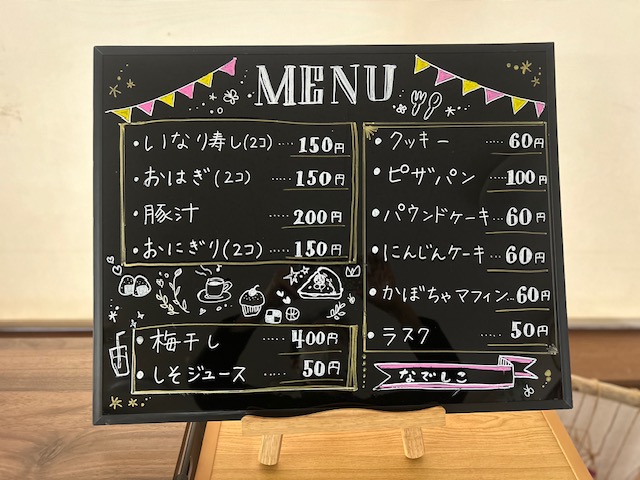 MENU
・いなり寿し(2コ)‥‥150円
・おはぎ(2コ)‥‥150円
・豚汁‥‥‥200円
・おにぎり(2コ)‥‥150円
・梅干し‥‥‥400円
・しそジュース‥‥50円
・クッキー‥‥‥60円
・ピザパン‥‥‥100円
・パウンドケーキ‥‥60円
・にんじんケーキ‥‥60円
・かぼちゃマフィン‥60円
・ラスク‥‥‥50円
なでしこ